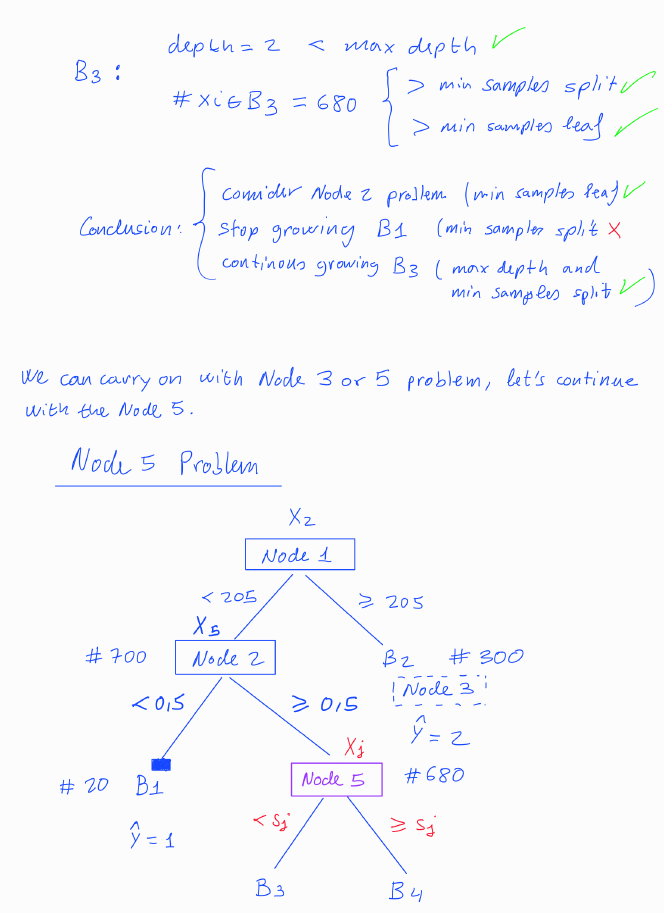 B3 :
depth = 2 < max depth ✓
# xi ∈ B3 = 680 { > min samples split ✓
> min samples leaf ✓
Conclusion: { consider Node 2 problem (min samples leaf ✓
stop growing B1 (min samples split X
continous growing B3 ( max depth and
min samples split ✓ )
We can carry on with Node 3 or 5 problem, let's continue
with the Node 5.
Node 5 Problem
X2
Node 1
< 205 ≥ 205
X5
# 700 Node 2 B2 # 300
Node 3
< 0,5 ≥ 0,5
Ŷ = 2
Xj
# 20 B1 Node 5 # 680
Ŷ = 1
< Sj ≥ Sj
B3 B4